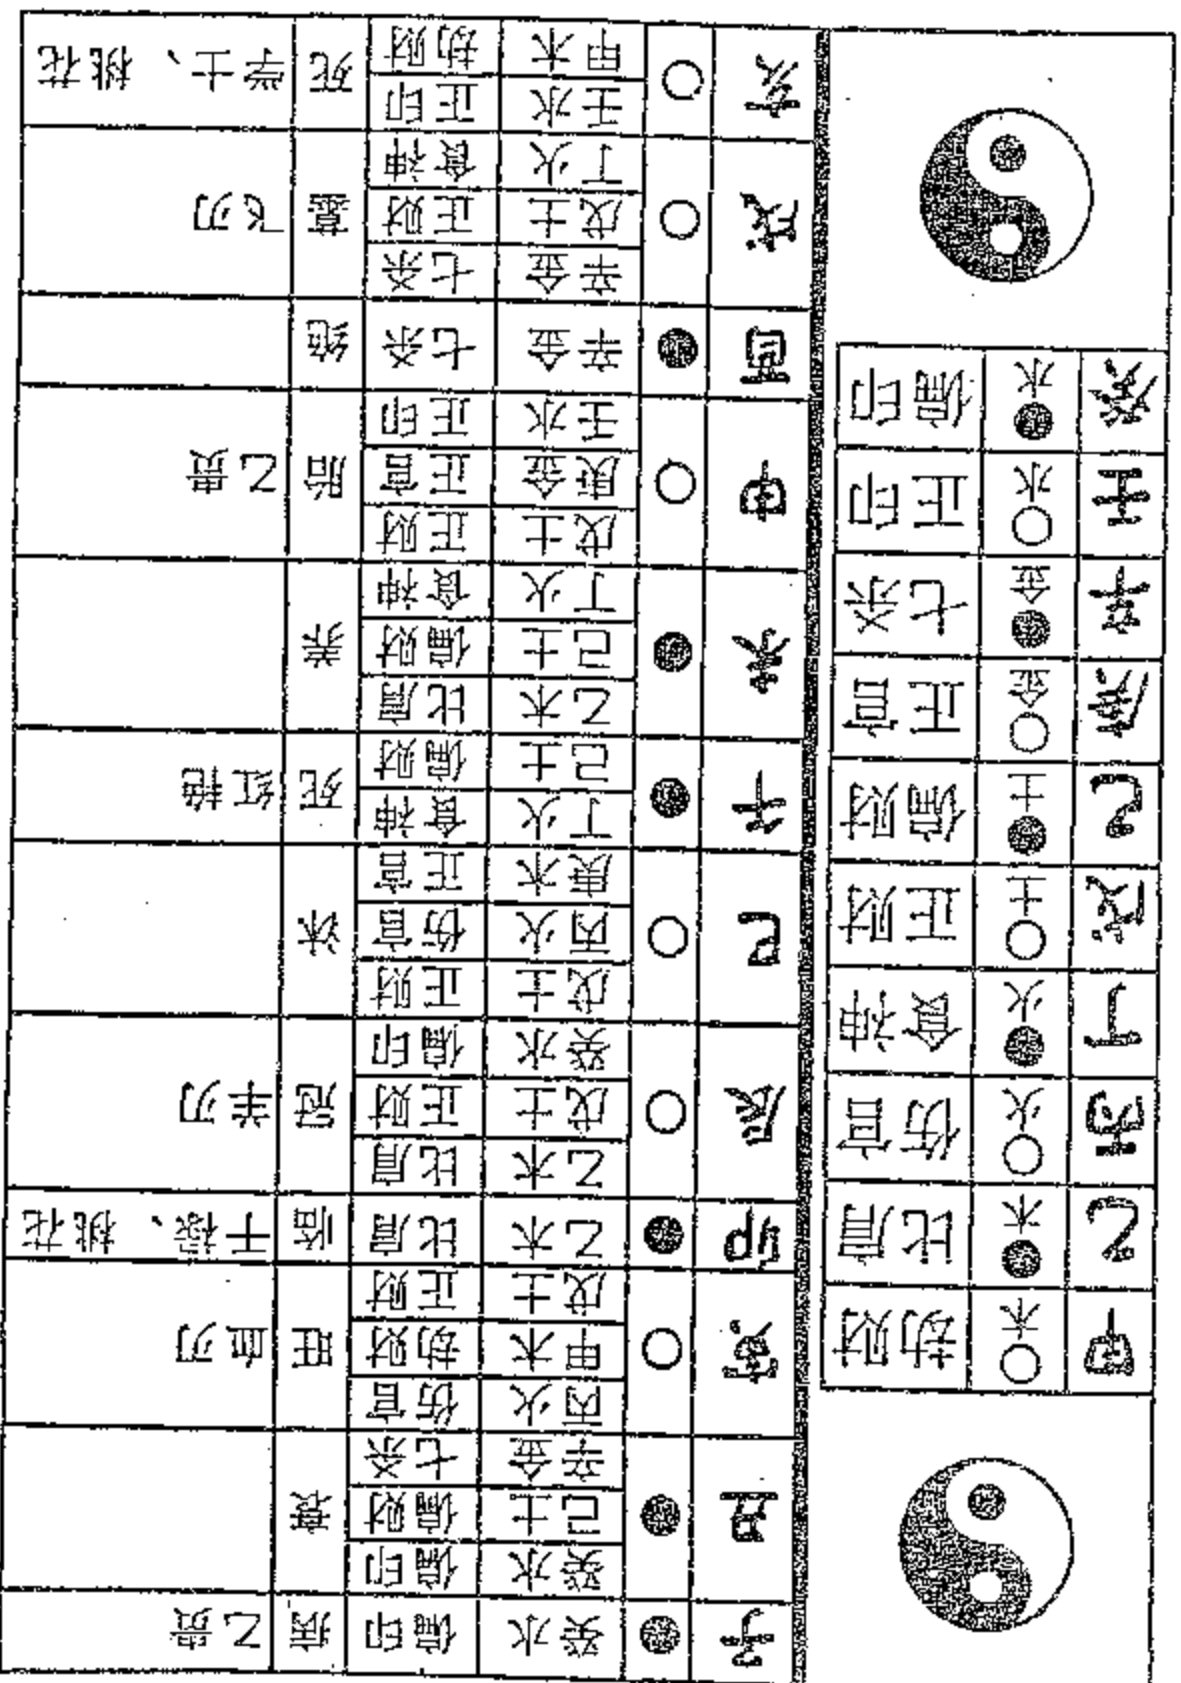 甲 木 劫财
乙 木 比肩
丙 火 伤官
丁 火 食神
戊 土 正财
己 土 偏财
庚 金 正官
辛 金 七杀
壬 水 正印
癸 水 偏印
子 癸水 偏印 病 乙贵
丑 癸水 偏印 衰
己土 偏财
辛金 七杀
寅 丙火 伤官 旺 血刃
甲木 劫财
戊土 正财
卯 乙木 比肩 临 干禄、桃花
辰 乙木 比肩 冠 羊刃
戊土 正财
癸水 偏印
巳 戊土 正财 沐
丙火 伤官
庚水 正官
午 丁火 食神 死 红艳
己土 偏财
未 乙木 比肩 养
己土 偏财
丁火 食神
申 戊土 正财 胎 乙贵
庚金 正官
壬水 正印
酉 辛金 七杀 绝
戌 辛金 七杀 墓 飞刃
戊土 正财
丁火 食神
亥 壬水 正印 死 学士、桃花
甲木 劫财